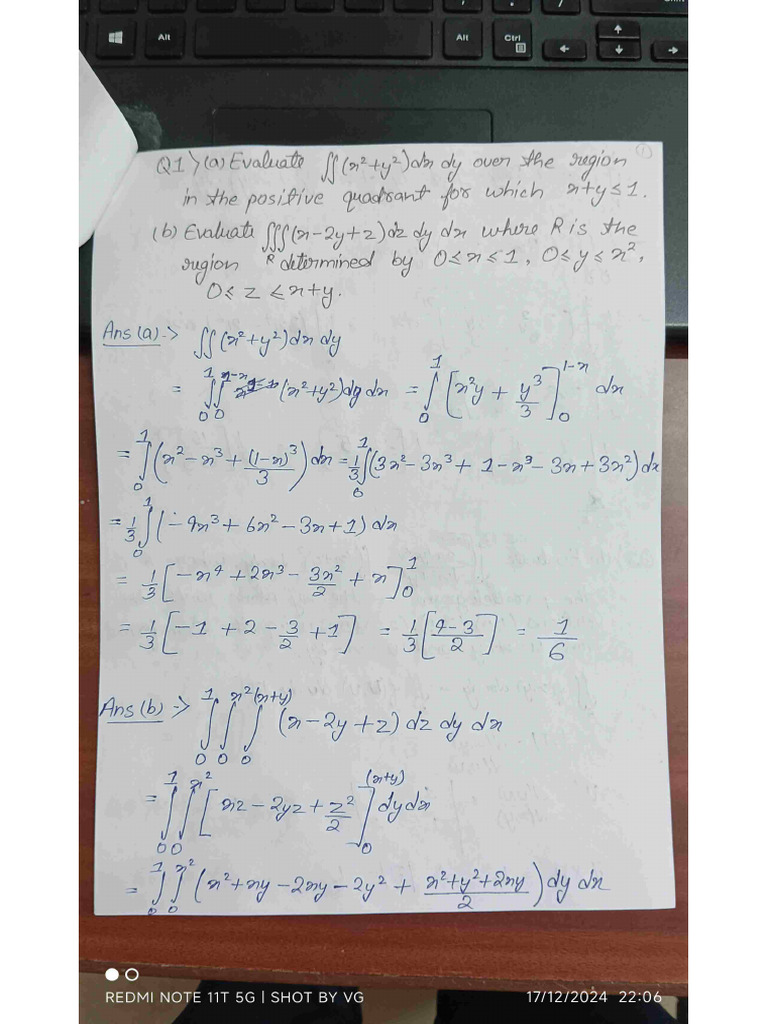 Alt
Alt
Ctrl
1
Q1> (a) Evaluate ∬(x²+y²)dx dy over the region
in the positive quadrant for which x+y≤1.
(b) Evaluate ∭_R (x-2y+z)dz dy dx where R is the
region determined by 0≤x≤1, 0≤y≤x²,
0≤z≤x+y.
Ans(a):-> ∬(x²+y²)dx dy
= ∫₀¹∫₀^(1-x) (x²+y²)dy dx = ∫₀¹ [x²y + y³/3]₀^(1-x) dx
= ∫₀¹ (x²-x³+(1-x)³/3) dx = 1/3 ∫₀¹ (3x²-3x³+1-x³-3x+3x²)dx
= 1/3 ∫₀¹ (-4x³+6x²-3x+1)dx
= 1/3 [-x⁴+2x³-3x²/2+x]₀¹
= 1/3 [-1+2-3/2+1] = 1/3 [4-3/2] = 1/6
Ans(b):-> ∫₀¹∫₀^(x²)∫₀^(x+y) (x-2y+z)dz dy dx
= ∫₀¹∫₀^(x²) [xz-2yz+z²/2]₀^(x+y) dy dx
= ∫₀¹∫₀^(x²) (x²+xy-2xy-2y²+(x²+y²+2xy)/2) dy dx
REDMI NOTE 11T 5G | SHOT BY VG
17/12/2024 22:06